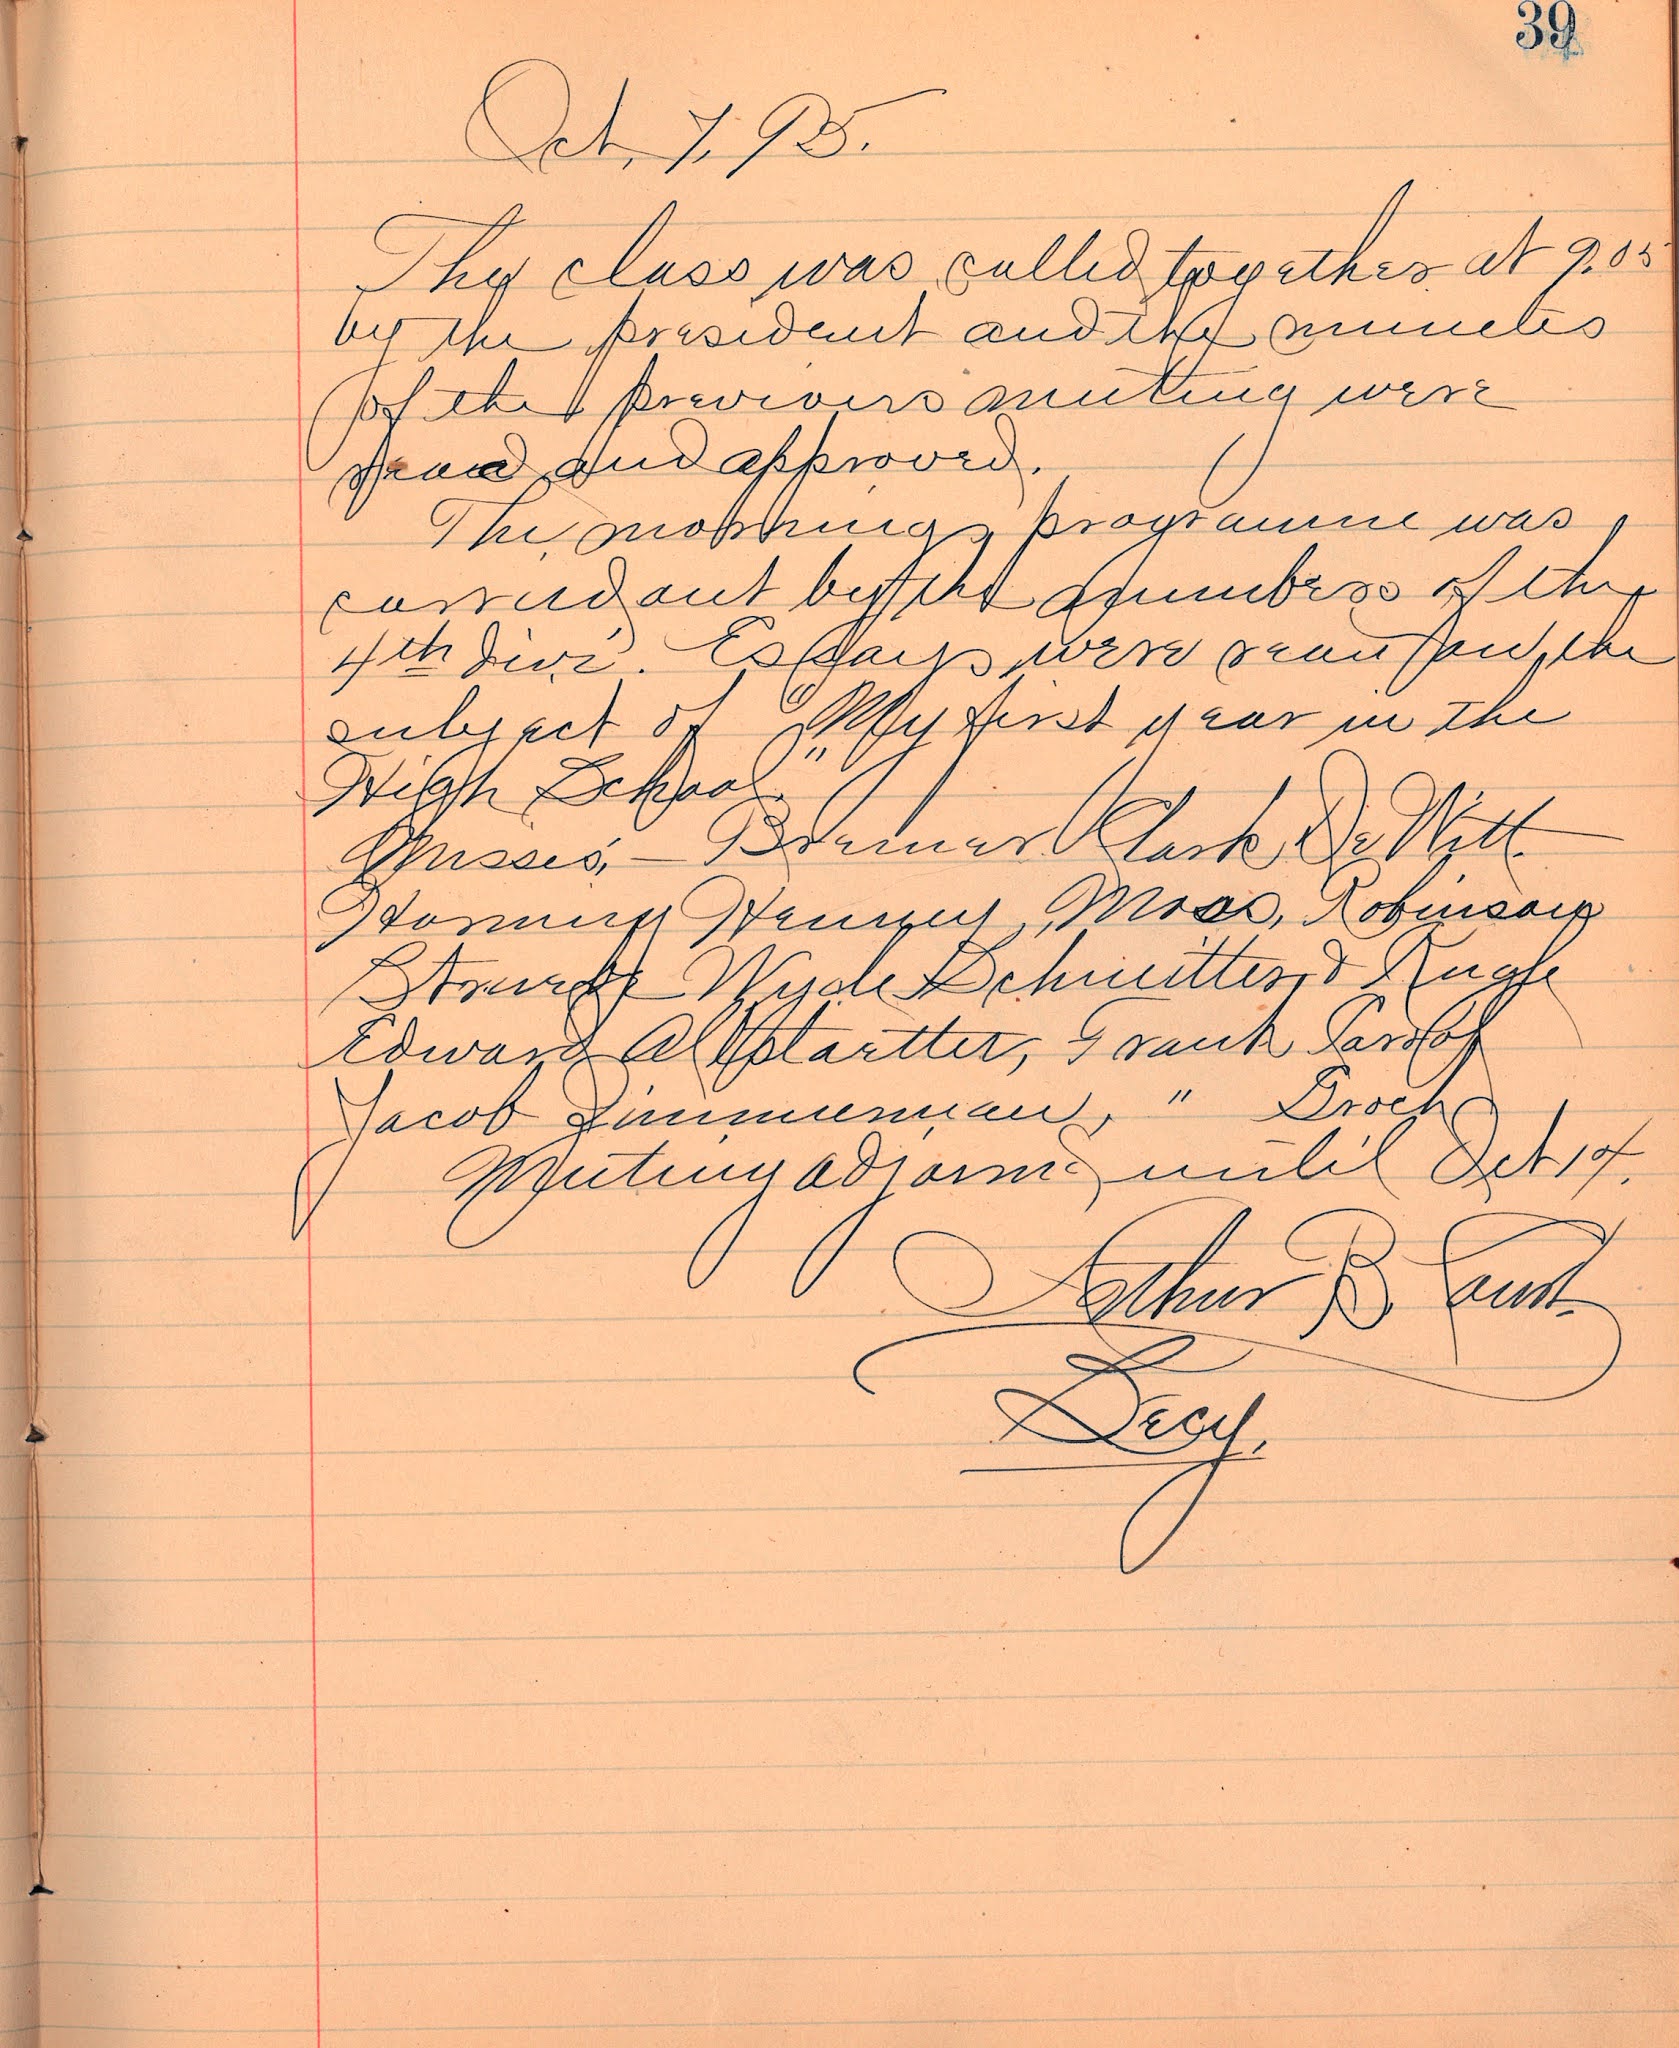 39
Oct. 7, 95.
The class was called together at 9.05
by the president and the minutes
of the previous meeting were
read and approved.
The morning programme was
carried out by the members of the
4th div. Essays were read on the
subject of "My first year in the
High School."
Misses, — Bremer Clark, De Witt
Henney, Moss, Robinson
Wyde Schnitter, & Rugh
Edward Altstaetter, Frank
Jacob Zimmerman, " Droch
Meeting adjorned until Oct 14.
Arthur B. Faust.
Secy.